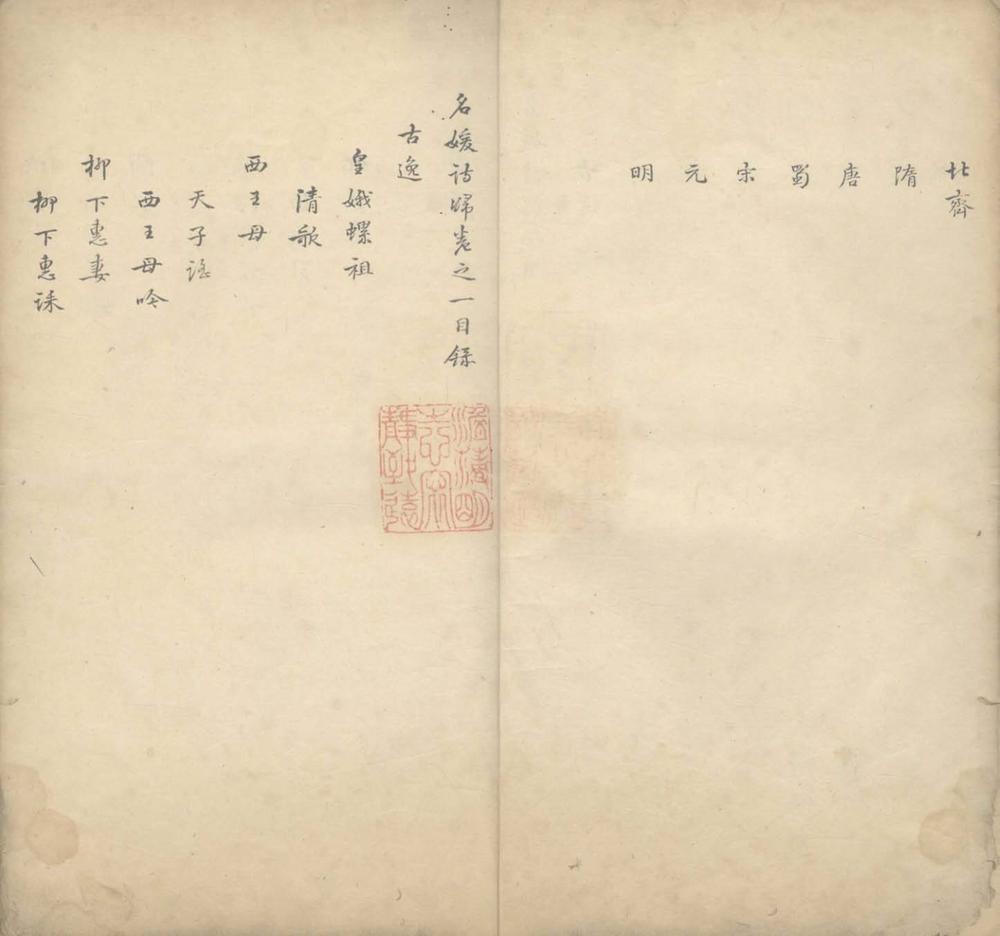 北齊
隋
唐
蜀
宋
元
明
名媛詩歸卷之一目錄
古逸
皇娥螺祖
清歌
西王母
天子謡
西王母吟
柳下惠妻
柳下惠誄
澹薄明
志寧
靜致遠